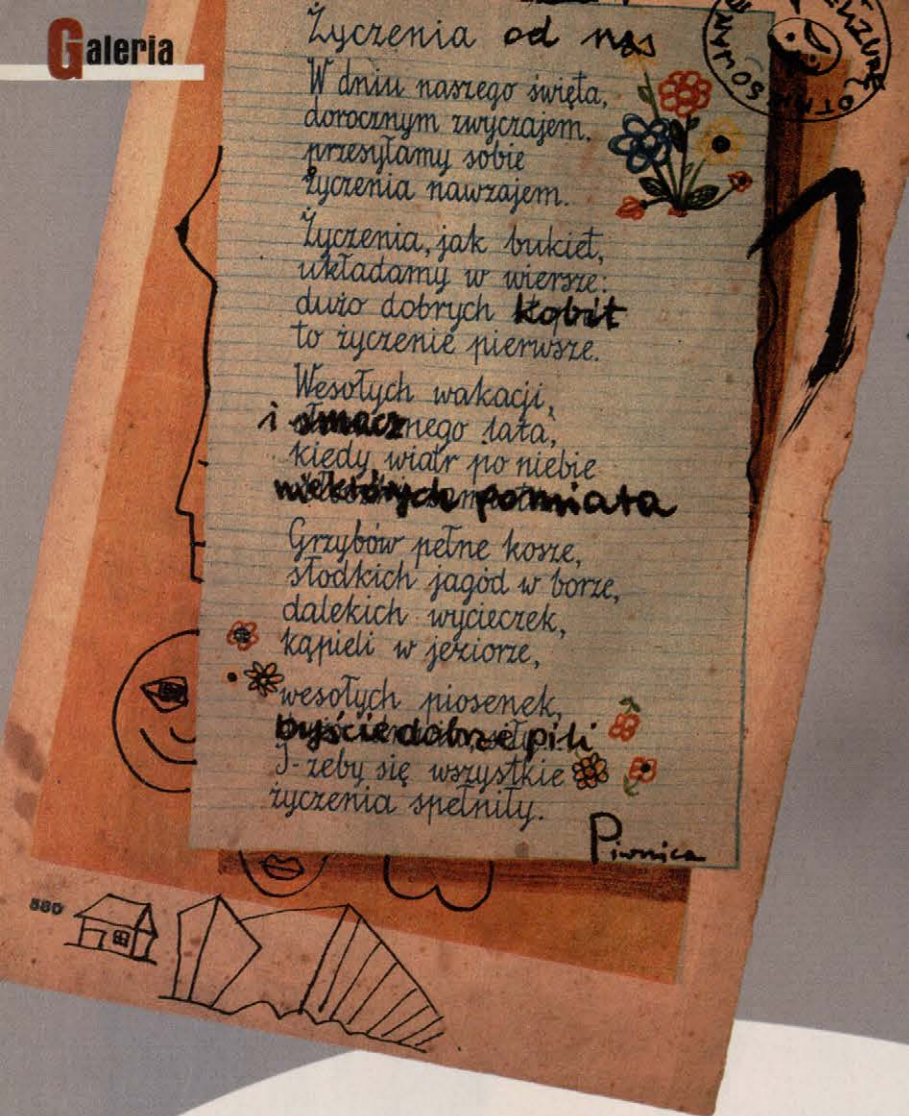 Galeria
Życzenia od nas
W dniu naszego święta,
dorocznym zwyczajem,
przesyłamy sobie
życzenia nawzajem.
Życzenia, jak bukiet,
układamy w wiersze:
dużo dobrych kobit
to życzenie pierwsze.
Wesołych wakacji,
i smacznego lata,
kiedy wiatr po niebie
niektórych pomiata
Grzybów pełne kosze,
słodkich jagód w borze,
dalekich wycieczek,
kąpieli w jeziorze,
wesołych piosenek,
byście dobrze pili
I-żeby się wszystkie
życzenia spełniły.
Piwnica
580